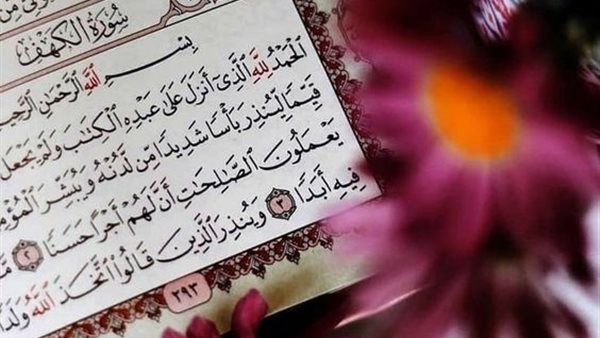 سُورَةُ الكَهْفِ
بِسْمِ اللَّهِ الرَّحْمَٰنِ
ٱلْحَمْدُ لِلَّهِ ٱلَّذِىٓ أَنزَلَ عَلَىٰ عَبْدِهِ ٱلْكِتَٰبَ وَلَمْ يَجْعَل
قَيِّمًا لِّيُنذِرَ بَأْسًا شَدِيدًا مِّن لَّدُنْهُ وَيُبَشِّرَ
يَعْمَلُونَ ٱلصَّٰلِحَٰتِ أَنَّ لَهُمْ أَجْرًا حَسَنًا ٢
فِيهِ أَبَدًا ٣ وَيُنذِرَ ٱلَّذِينَ قَالُوا۟ ٱتَّخَذَ ٱللَّهُ وَلَدًا
٢٩٣